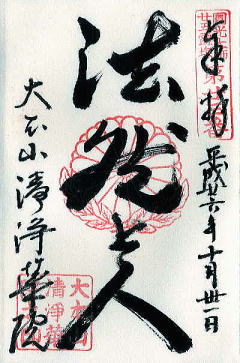 奉拝
平成廿六年十月卅一日
法然上人
大本山清浄華院
大本山
清浄華